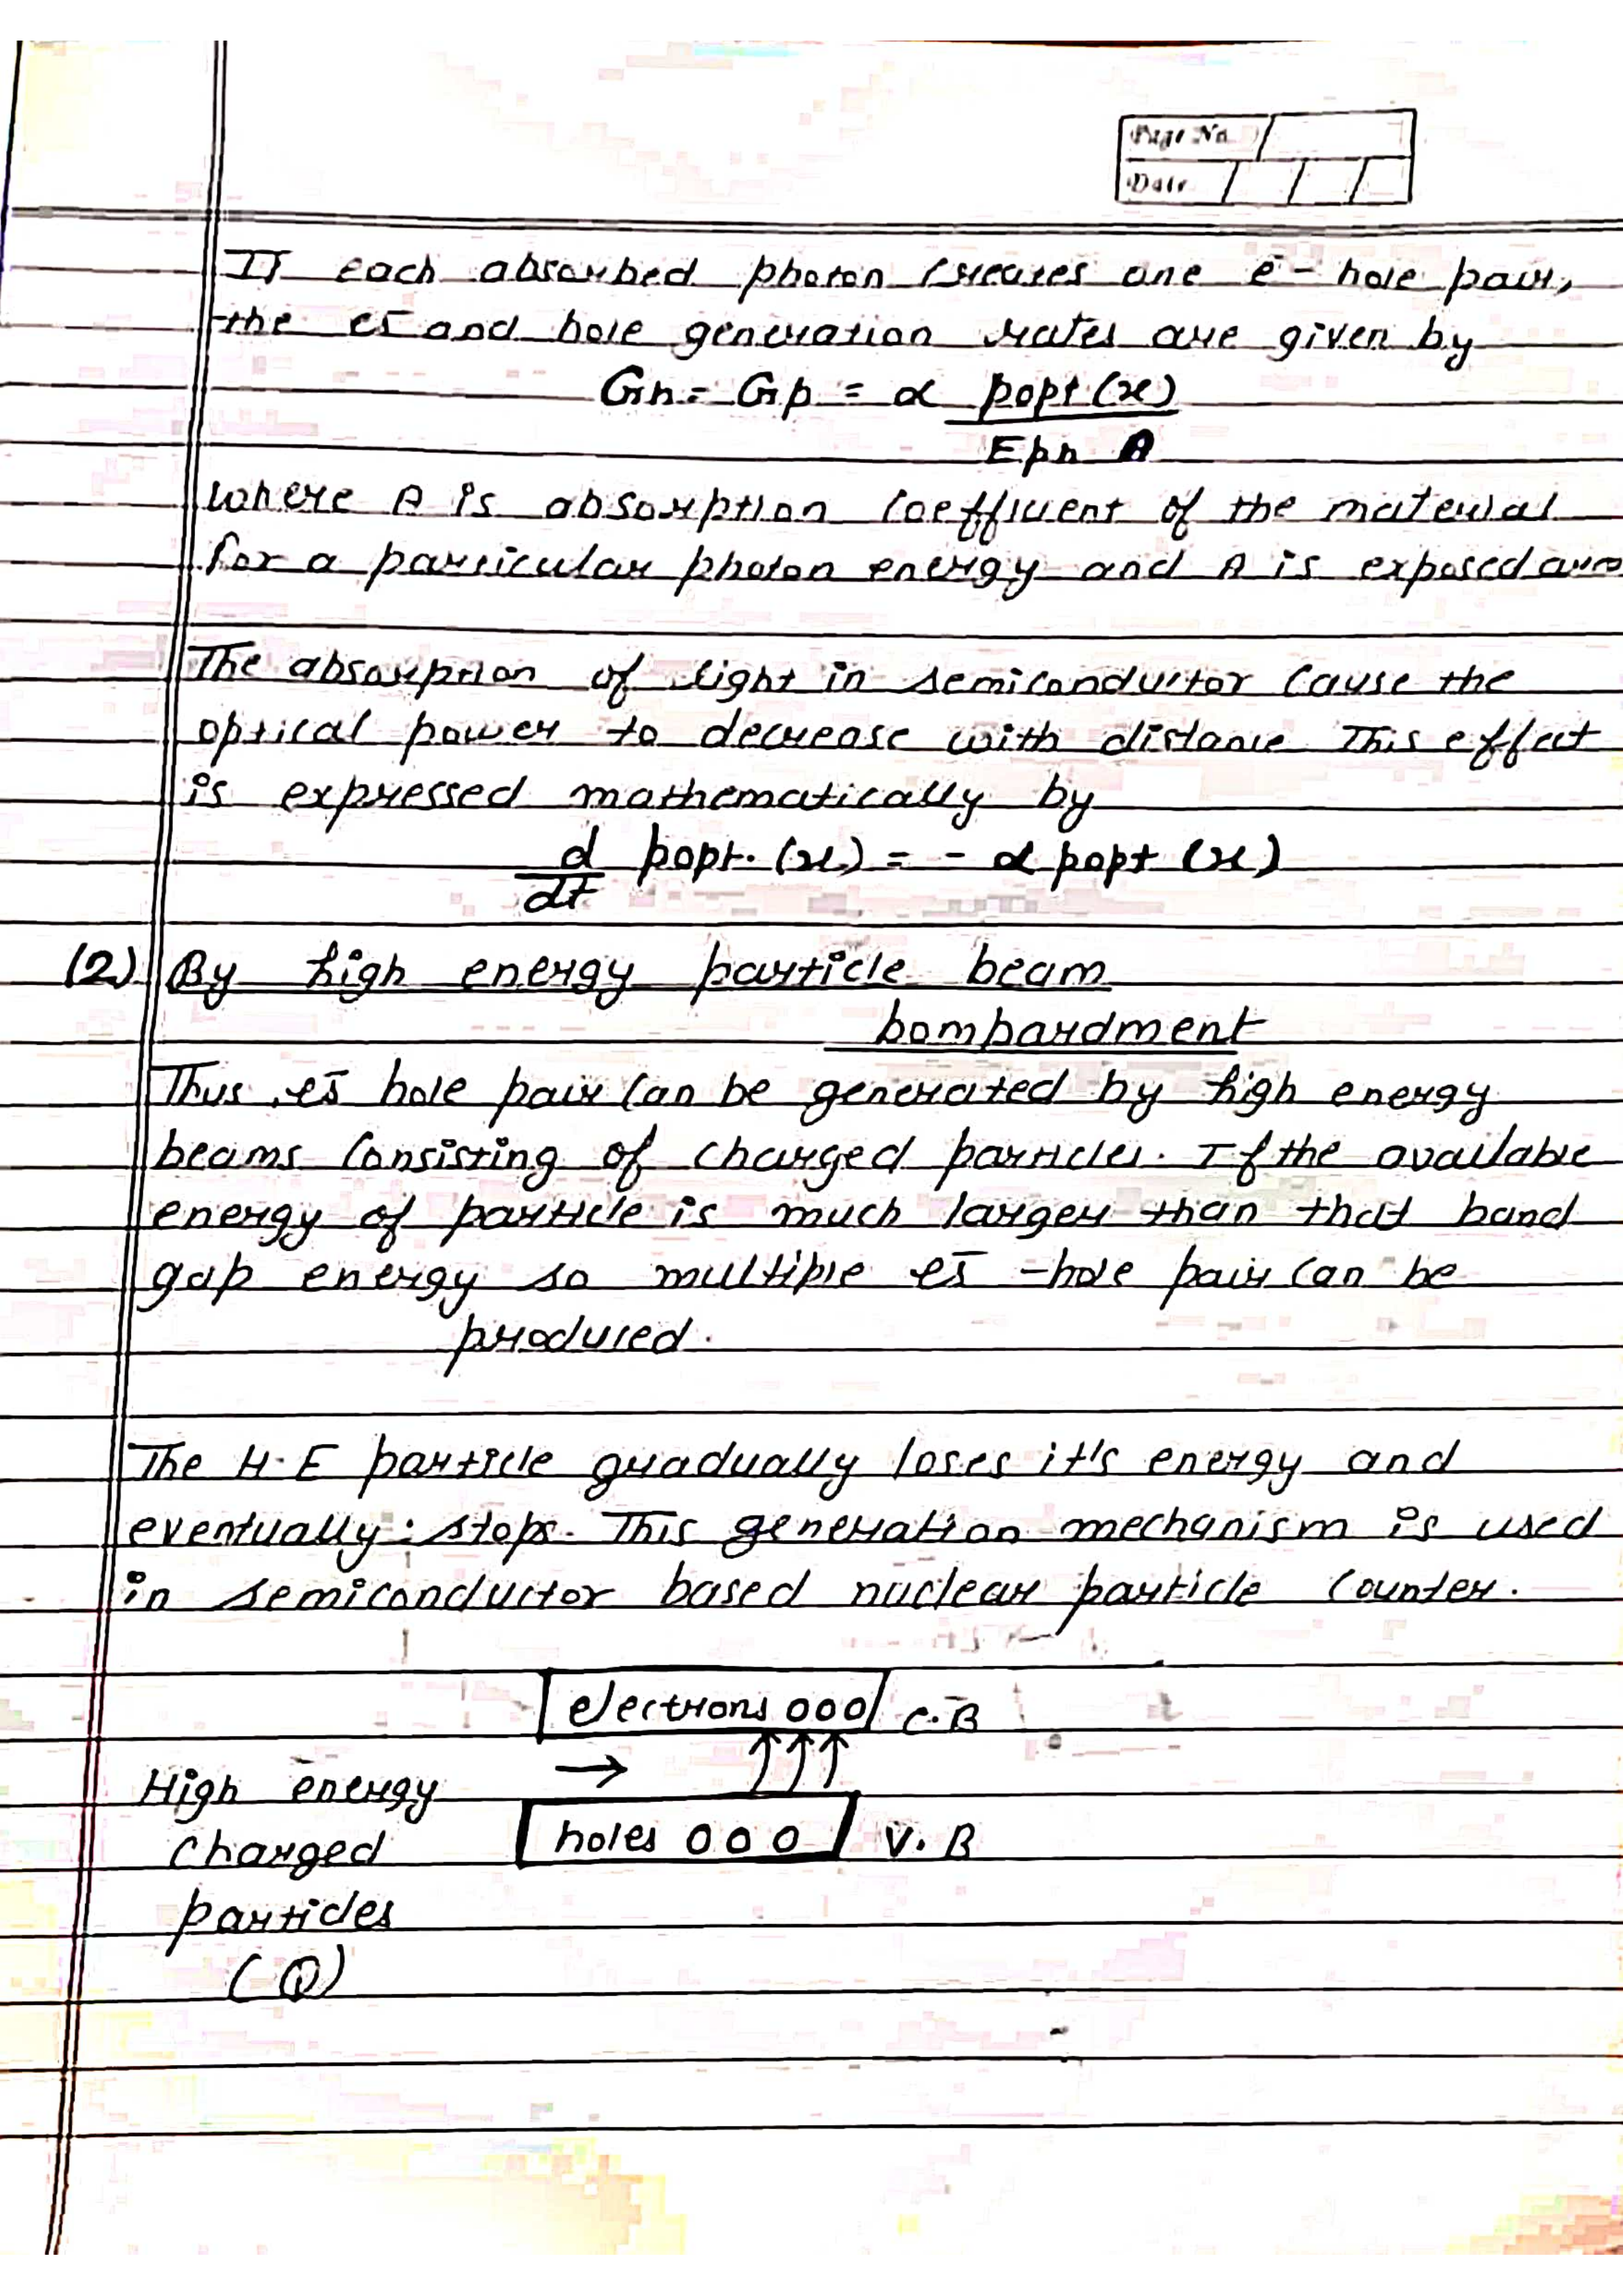 Page No.
Date
If each absorbed photon creates one e- hole pair,
the es̄ and hole generation rates are given by
Gn = Gp = α popt (x)
Eph A
where A is absorption coefficient of the material
for a particular photon energy and A is exposed
The absorption of light in semiconductor cause the
optical power to decrease with distance This effect
is expressed mathematically by
d popt. (x) = - α popt (x)
dt
(2) By high energy particle beam
bombardment
Thus es̄ hole pair can be generated by high energy
beams consisting of charged particles. If the available
energy of particle is much larger than that band
gap energy so multiple es̄ -hole pair can be
produced.
The H.E particle gradually loses it's energy and
eventually stops. This generation mechanism is used
in semiconductor based nuclear particle counter.
electrons 000 C.B
→
High energy
holes 000 V.B
charged
particles